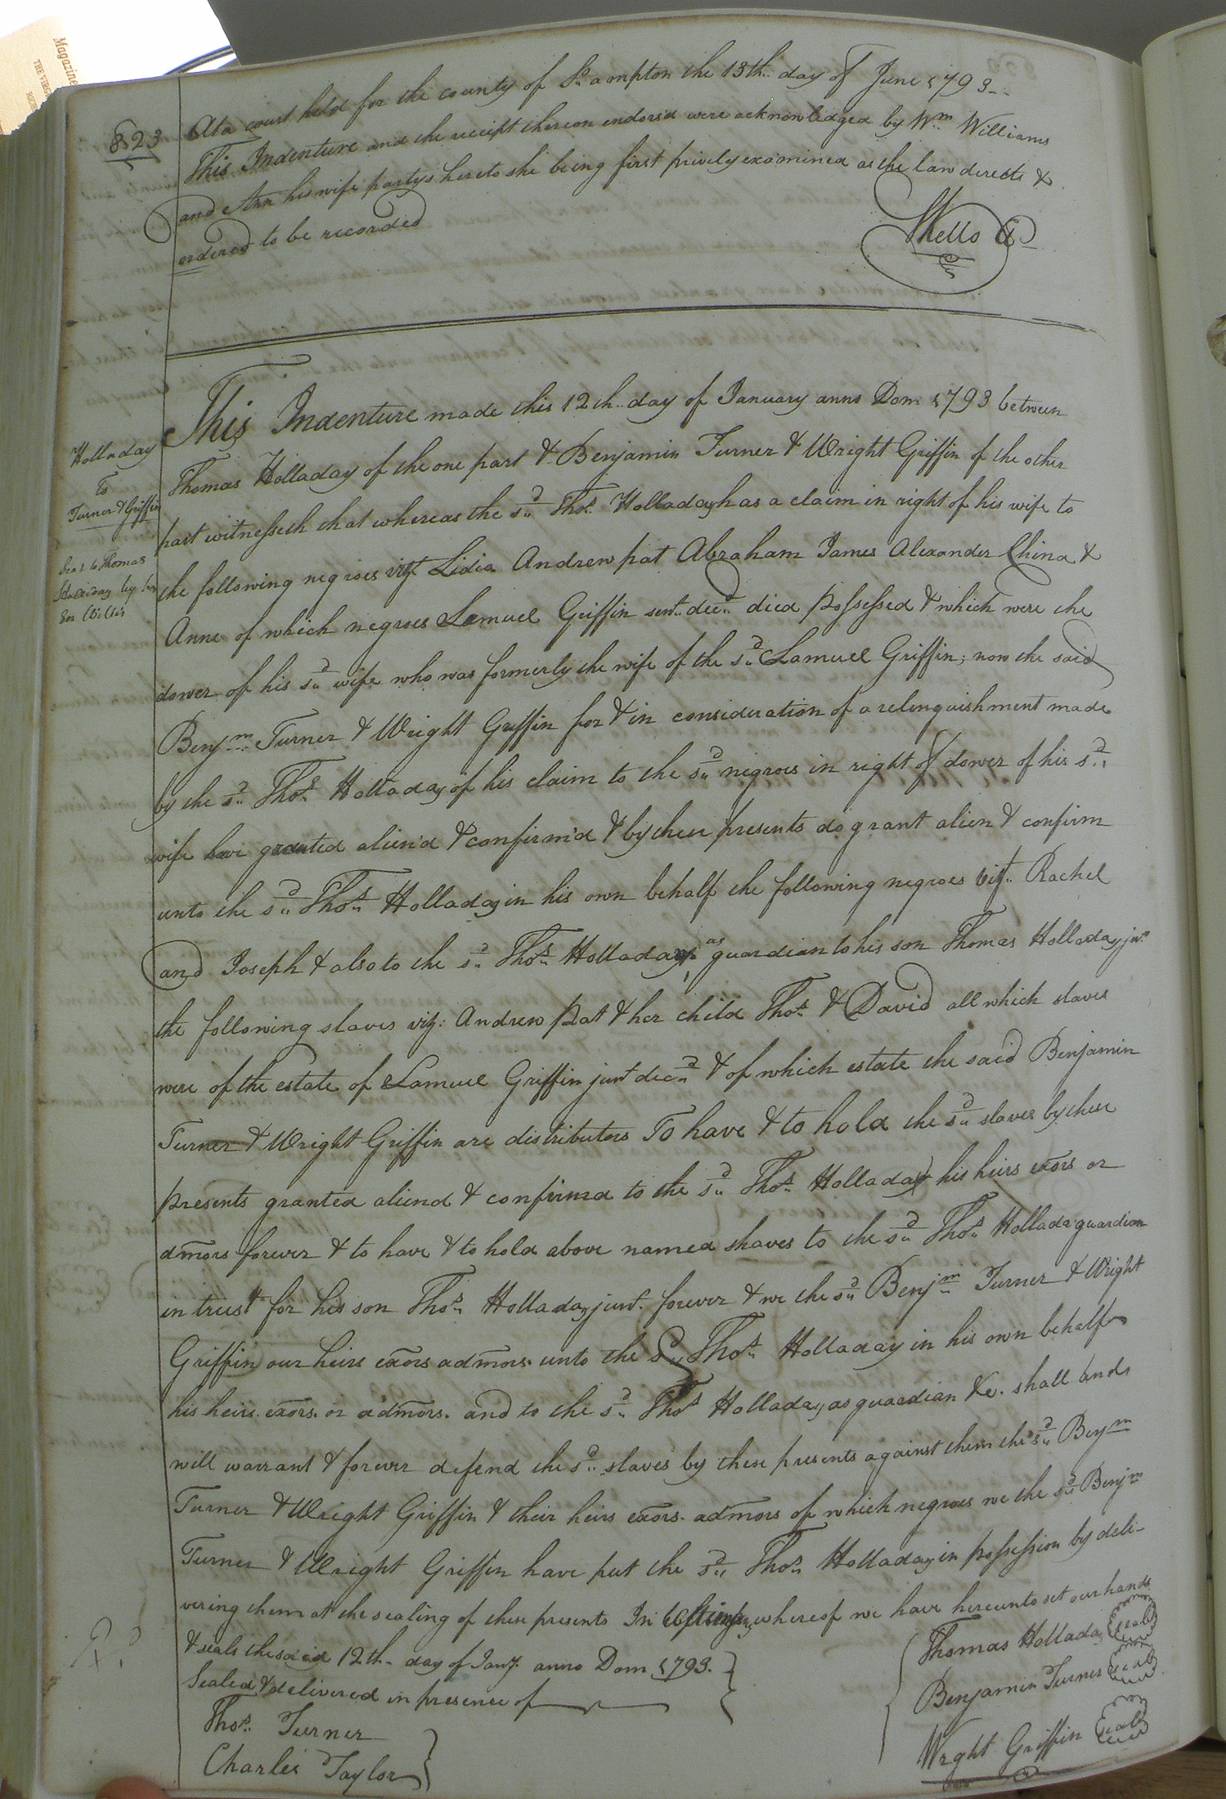 823
At a court held for the county of So.ampton the 13th day of June 1793
This Indenture and the receipt thereon endors'd were acknowledged by Wm Williams
and Ann his wife partys hereto she being first privily examined as the law directs &
ordered to be recorded
Holladay
to
Turner & Griffin
This Indenture made this 12th day of January anno Dom 1793 between
Thomas Holladay of the one part & Benjamin Turner & Wright Griffin of the other
part witnesseth that whereas the sd Thos Holladay has a claim in right of his wife to
the following negroes vizt Lidia Andrew pat Abraham James Alexander China &
Anne of which negroes Samuel Griffin senr decd died possessed & which were the
dower of his sd wife who was formerly the wife of the sd Samuel Griffin; now the said
Benjm Turner & Wright Griffin for & in consideration of a relinquishment made
by the sd Thos Holladay of his claim to the sd negroes in right of dower of his sd
wife have granted alien'd & confirm'd & by these presents do grant alien & confirm
unto the sd Thos Holladay in his own behalf the following negroes vizt Rachel
and Joseph & also to the sd Thos Holladay as guardian to his son Thomas Holladay junr
the following slaves viz: Andrew Pat & her child Thos & David all which slaves
were of the estate of Samuel Griffin junr decd & of which estate the said Benjamin
Turner & Wright Griffin are distributors To have & to hold the sd slaves by these
presents granted aliend & confirmd to the sd Thos Holladay his heirs exors or
admors forever & to have & to hold above named slaves to the sd Thos Hollada guardian
in trust for his son Thos Holladay junr. forever & we the sd Benjm Turner & Wright
Griffin our heirs exors admors. unto the Sd Thos Holladay in his own behalf
his heirs. exors. or admors. and to the sd Thos Holladay as guardian &c. shall and
will warrant & forever defend the sd slaves by these presents against them the sd Benjm
Turner & Wright Griffin & their heirs exors. admors of which negroes we the sd Benjm
Turner & Wright Griffin have put the sd Thos Holladay in possession by deli-
vering them at the sealing of these presents In whereof we have hereunto set our hands
& seals the said 12th day of Jany. anno Dom 1793.
Sealed & delivered in presence of
Thos. Turner
Charles Taylor
Thomas Hollada seal
Benjamin Turner seal
Wright Griffin seal